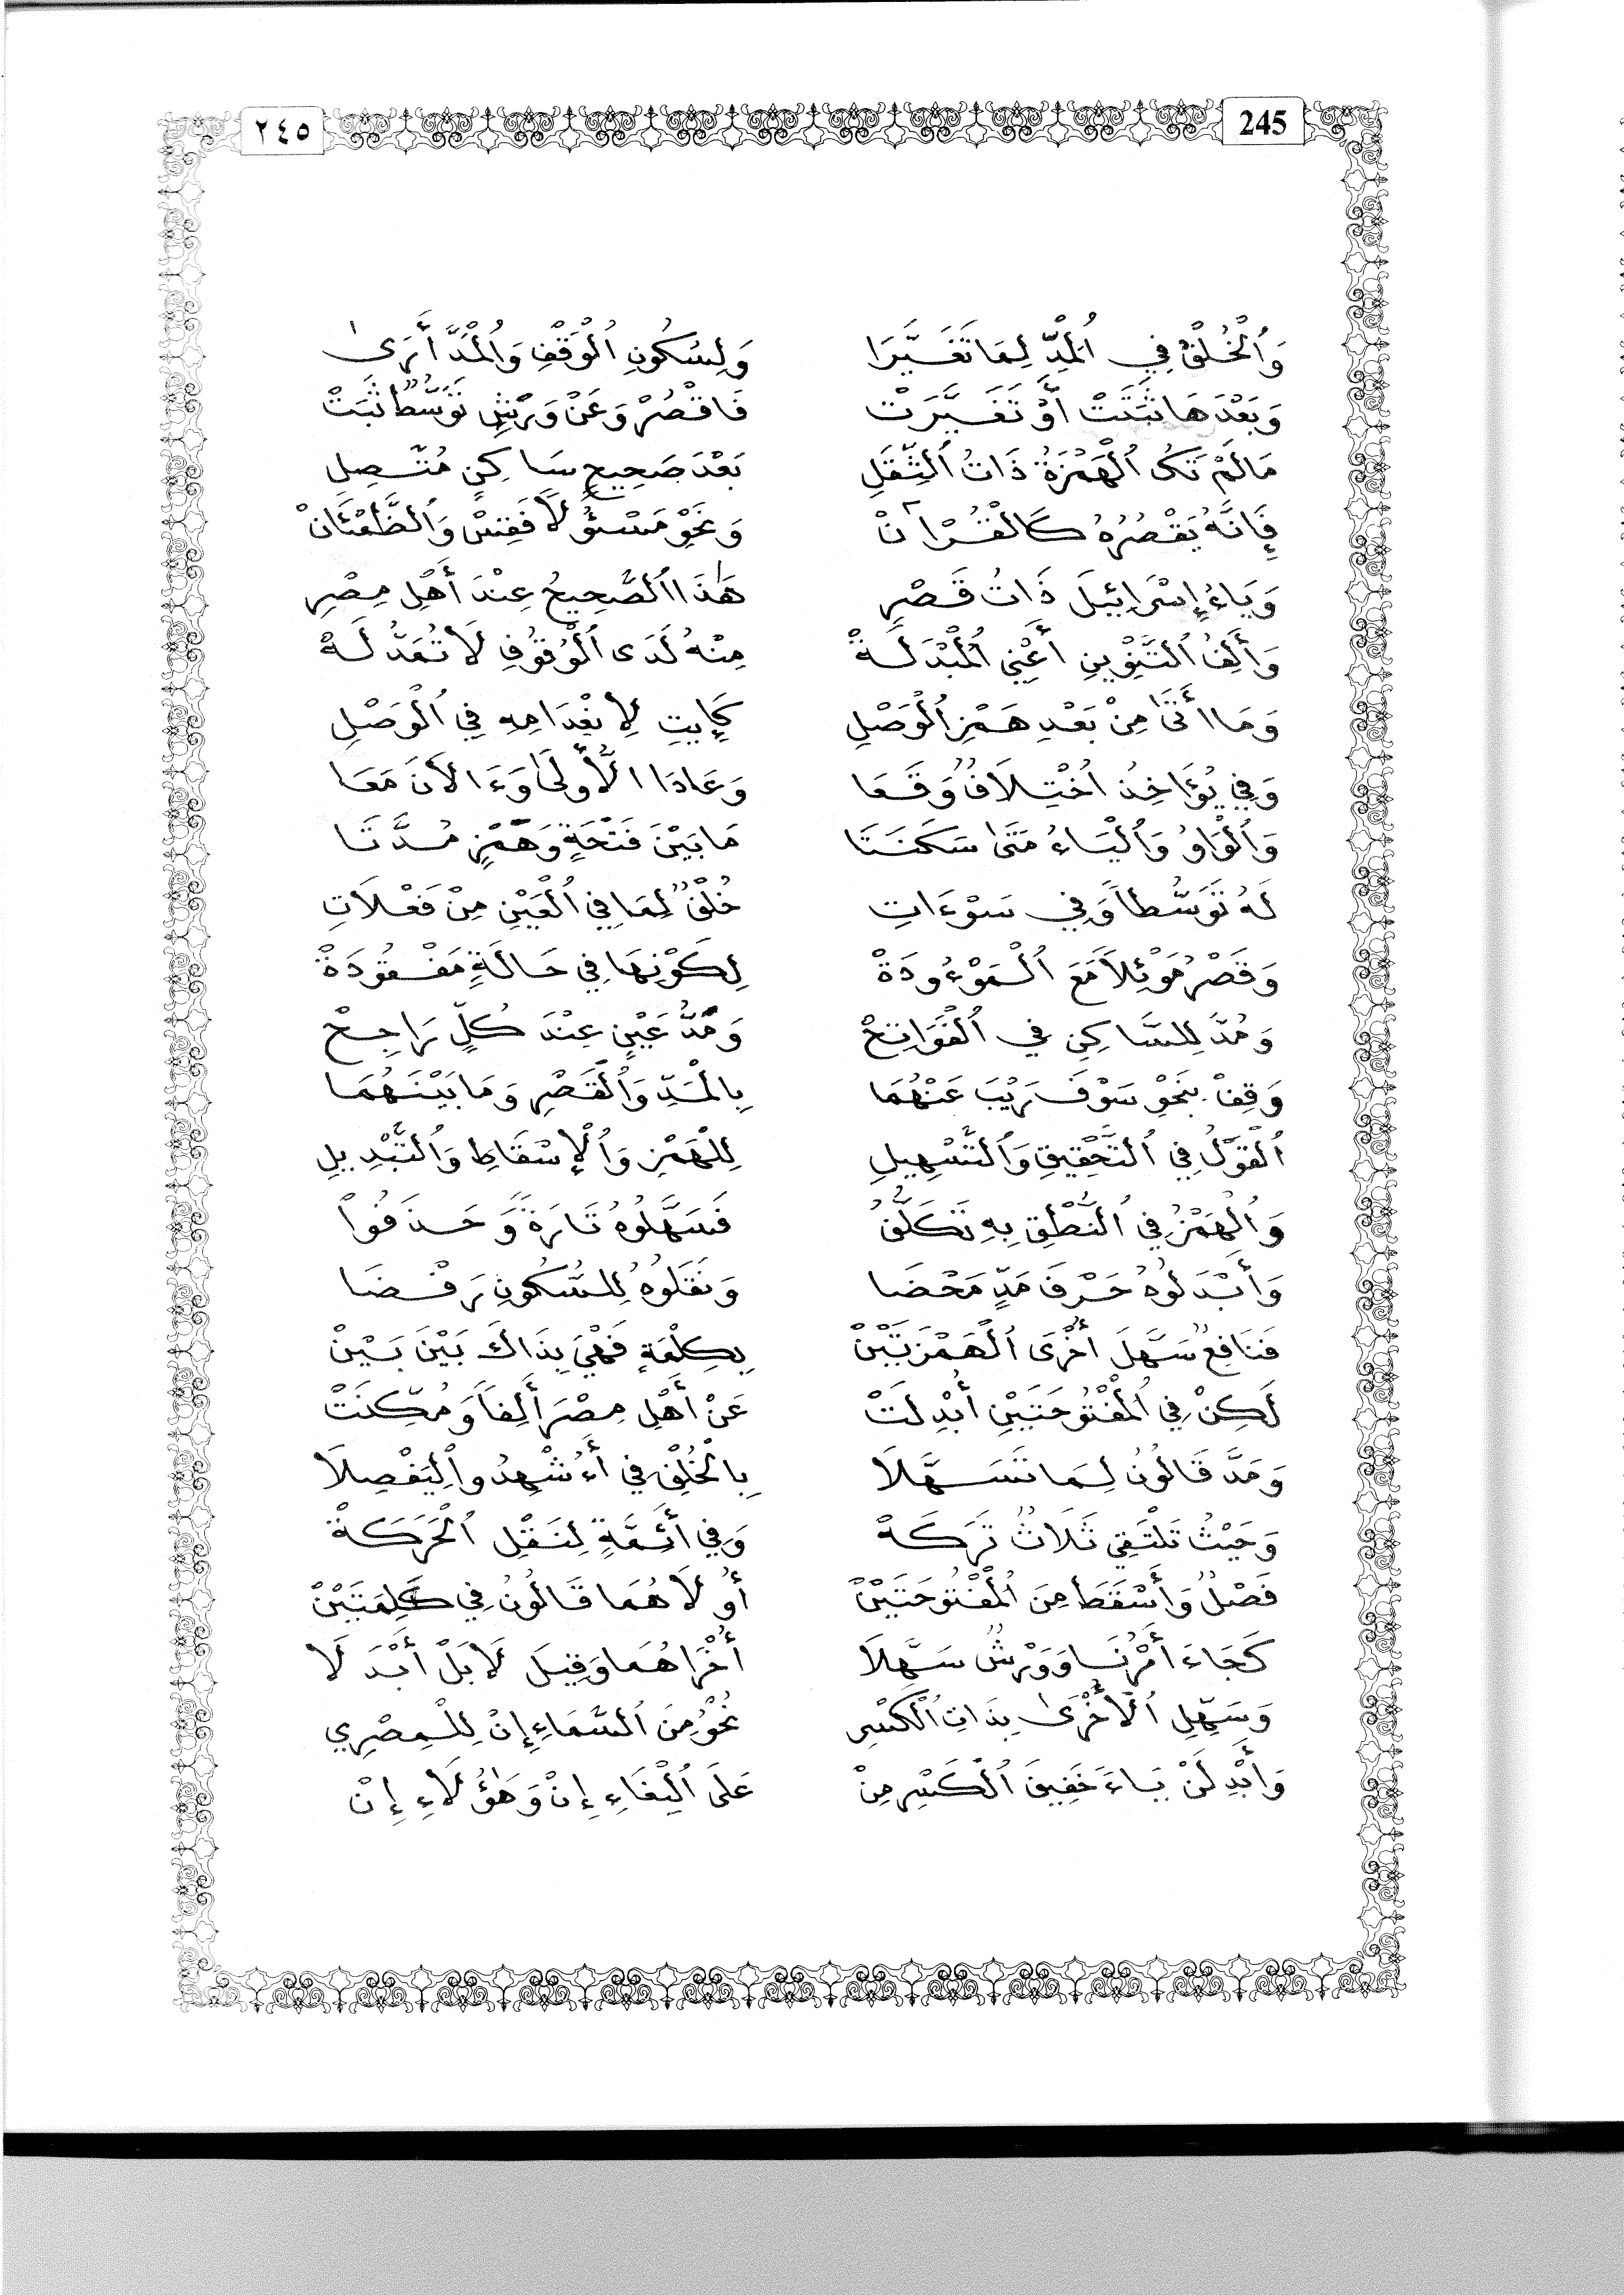 ٢٤٥ 245
وَٱلْخُلْفُ فِي ٱلْمَدِّ لِمَا تَغَيَّرَا وَلِسُكُونِ ٱلْوَقْفِ وَٱلْمَدُّ أَرَىٰ
وَبَعْدَهَا ثَبَتَتْ أَوْ تَغَيَّرَتْ فَاقْصُرْ وَعَنْ وَرْشٍ تَوَسُّطٌ ثَبَتْ
مَا لَمْ تَكُ ٱلْهَمْزَةُ ذَاتُ ٱلثِّقَلِ بَعْدَ صَحِيحٍ سَاكِنٍ مُتَّصِلِ
فَإِنَّهُ يَقْصُرُهُ كَالْقُرْآنْ وَنَحْوِ مَسْئُولًا فَقِسْ وَٱلظَّمْئَانْ
وَيَاءُ إِسْرَائِيلَ ذَاتُ قَصْرِ هَٰذَا ٱلصَّحِيحُ عِنْدَ أَهْلِ مِصْرِ
وَأَلِفُ ٱلتَّنْوِينِ أَعْنِي ٱلْمُبْدَلَةْ مِنْهُ لَدَى ٱلْوُقُوفِ لَا تُمَدُّ لَهْ
وَمَا أَتَىٰ مِنْ بَعْدِ هَمْزِ ٱلْوَصْلِ كَإِيتِ لِانْعِدَامِهِ فِي ٱلْوَصْلِ
وَفِي يُؤَاخِذُ ٱخْتِلَافٌ وَقَعَا وَعَادًا ٱلْأُولَىٰ وَءَالْآنَ مَعَا
وَٱلْوَاوُ وَٱلْيَاءُ مَتَىٰ سَكَنَتَا مَا بَيْنَ فَتْحَةٍ وَهَمْزٍ مُدَّتَا
لَهُ تَوَسُّطًا وَفِي سَوْءَاتِ خُلْفٌ لِمَا فِي ٱلْعَيْنِ مِنْ فَعْلَاتِ
وَقَصْرُ مَوْئِلًا مَعَ ٱلْمَوْءُودَةْ لِكَوْنِهَا فِي حَالَةٍ مَفْقُودَةْ
وَمُدَّ لِلسَّاكِنِ فِي ٱلْفَوَاتِحْ وَمَدُّ عَيْنٍ عِنْدَ كُلٍّ رَاجِحْ
وَقِفْ بِنَحْوِ سَوْفَ رَيْبَ عَنْهُمَا بِٱلْمَدِّ وَٱلْقَصْرِ وَمَا بَيْنَهُمَا
ٱلْقَوْلُ فِي ٱلتَّحْقِيقِ وَٱلتَّسْهِيلِ لِلْهَمْزِ وَٱلْإِسْقَاطِ وَٱلتَّبْدِيلِ
وَٱلْهَمْزُ فِي ٱلنُّطْقِ بِهِ تَكَلُّفُ فَسَهَّلُوهُ تَارَةً وَحَذَفُوا
وَأَبْدَلُوهُ حَرْفَ مَدٍّ مَحْضَا وَنَقَلُوهُ لِلسُّكُونِ رَفْضَا
فَنَافِعٌ سَهَّلَ أُخْرَى ٱلْهَمْزَتَيْنْ بِكِلْمَةٍ فَهْيَ بِذَاكَ بَيْنَ بَيْنْ
لَكِنْ فِي ٱلْمَفْتُوحَتَيْنِ أُبْدِلَتْ عَنْ أَهْلِ مِصْرَ أَلِفًا وَمُكِّنَتْ
وَمَدَّ قَالُونُ لِمَا تَسَهَّلَا بِٱلْخُلْفِ فِي أَءُشْهِدُوا لِيَفْصِلَا
وَحَيْثُ تَلْتَقِي ثَلَاثٌ تَرَكَهْ وَفِي أَئِمَّةٍ لِنَقْلِ ٱلْحَرَكَةْ
فَصْلٌ وَأَسْقَطَ مِنَ ٱلْمَفْتُوحَتَيْنْ أُولَاهُمَا قَالُونُ فِي كَلِمَتَيْنْ
كَجَاءَ أَمْرُنَا وَوَرْشٌ سَهَّلَا أُخْرَاهُمَا وَقِيلَ لَا بَلْ أَبْدَلَا
وَسَهِّلِ ٱلْأُخْرَىٰ بِذَاتِ ٱلْكَسْرِ نَحْوُ مِنَ ٱلسَّمَاءِ إِنْ لِلْمِصْرِي
وَأَبْدِلَنْ يَاءً خَفِيفَ ٱلْكَسْرِ مِنْ عَلَى ٱلْبِغَاءِ إِنْ وَهَٰؤُلَاءِ إِنْ